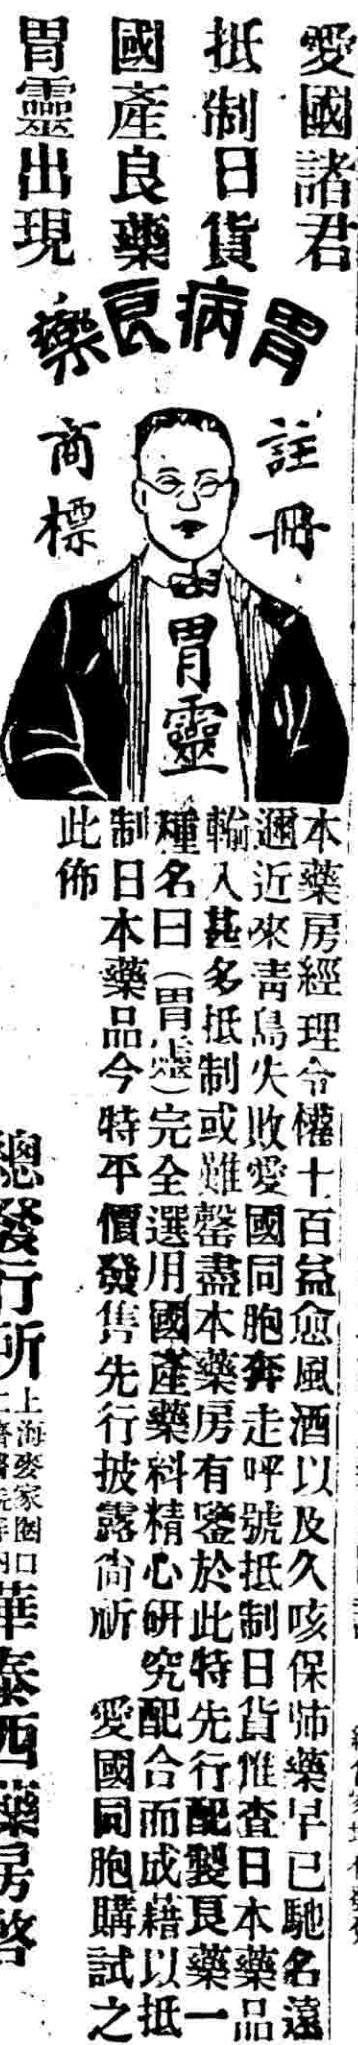 愛國諸君
抵制日貨
國產良藥
胃靈出現
胃病良藥
註冊
商標
胃靈
本藥房經理令權十百益愈風酒以及久咳保肺藥早已馳名遠
邇近來青島失敗愛國同胞奔走呼號抵制日貨惟查日本藥品
輸入甚多抵制或難罄盡本藥房有鑒於此特先行配製良藥一
種名曰（胃靈）完全選用國產藥料精心研究配合而成藉以抵
制日本藥品今特平價發售先行披露尚祈　愛國同胞購試之
此佈
總發行所
上海麥家圈口
華泰西藥房啓